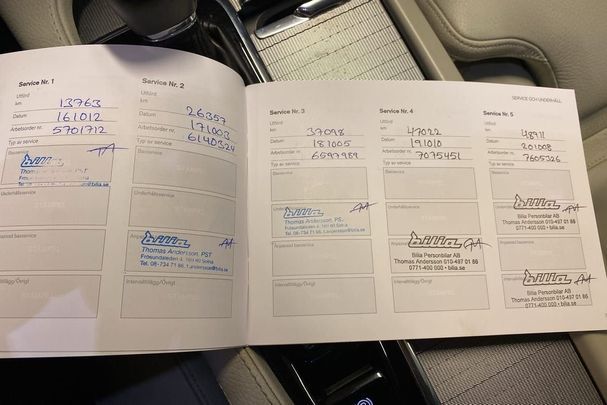 Service Nr. 1
Utförd
km 13763
Datum 161012
Arbetsorder nr. 5701712
Typ av service
Basservice
bilia
Underhållsservice
Anpassad basservice
Intervalltillägg/Övrigt
Service Nr. 2
Utförd
km 26357
Datum 171003
Arbetsorder nr. 6140324
Typ av service
Basservice
Underhållsservice
bilia
Thomas Andersson, PST
Frösundaleden 4, 169 70 Solna
Tel. 08-734 71 66, t.andersson@bilia.se
Intervalltillägg/Övrigt
Service Nr. 3
Utförd
km 37098
Datum 181005
Arbetsorder nr. 6597989
Typ av service
Basservice
bilia
Thomas Andersson, PST
Frösundaleden 4, 169 70 Solna
Anpassad basservice
Intervalltillägg/Övrigt
Service Nr. 4
Utförd
km 47022
Datum 191010
Arbetsorder nr. 7075451
Typ av service
Basservice
Underhållsservice
bilia
Bilia Personbilar AB
Thomas Andersson 010-497 01 86
0771-400 000 • bilia.se
Intervalltillägg/Övrigt
SERVICE OCH UNDERHÅLL
Service Nr. 5
Utförd
km 48911
Datum 201008
Arbetsorder nr. 7605326
Typ av service
Basservice
bilia
Bilia Personbilar AB
Thomas Andersson 010-497 01 86
0771-400 000 • bilia.se
Anpassad basservice
bilia
Bilia Personbilar AB
Thomas Andersson 010-497 01 86
0771-400 000 • bilia.se